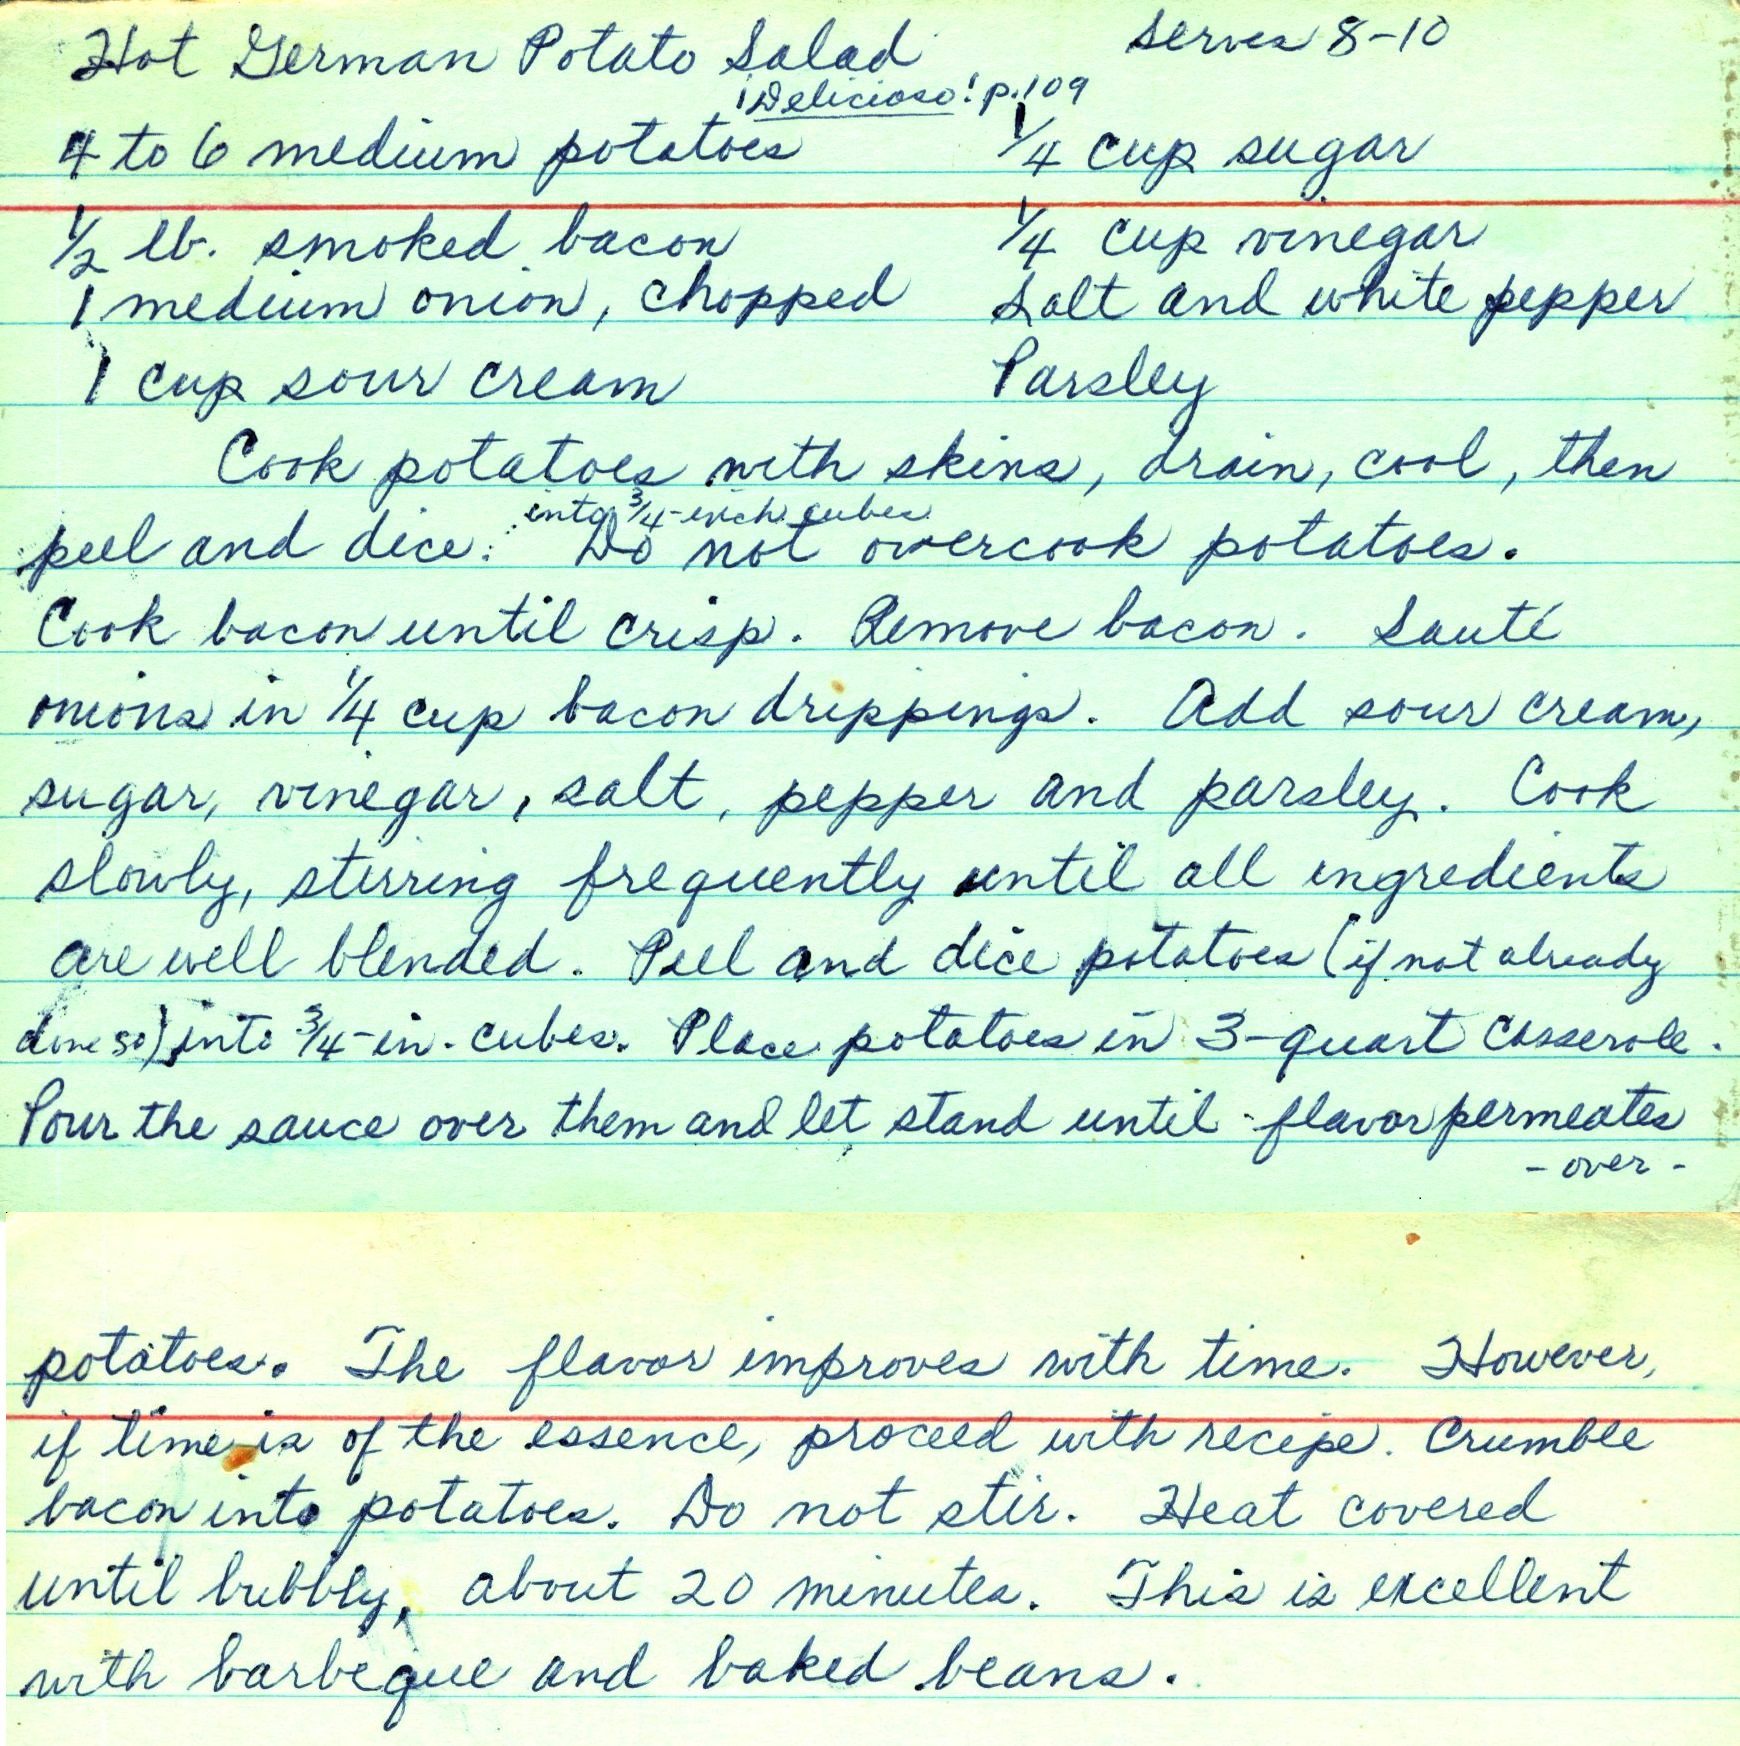 Hot German Potato Salad Serves 8-10
¡Delicioso! p.109
4 to 6 medium potatoes 1/4 cup sugar
1/2 lb. smoked bacon 1/4 cup vinegar
1 medium onion, chopped Salt and white pepper
1 cup sour cream Parsley
Cook potatoes with skins, drain, cool, then
into 3/4-inch cubes
peel and dice. Do not overcook potatoes.
Cook bacon until crisp. Remove bacon. Sauté
onions in 1/4 cup bacon drippings. Add sour cream,
sugar, vinegar, salt, pepper and parsley. Cook
slowly, stirring frequently until all ingredients
are well blended. Peel and dice potatoes (if not already
done so) into 3/4-in. cubes. Place potatoes in 3-quart casserole.
Pour the sauce over them and let stand until flavor permeates
- over -
potatoes. The flavor improves with time. However,
if time is of the essence, proceed with recipe. Crumble
bacon into potatoes. Do not stir. Heat covered
until bubbly, about 20 minutes. This is excellent
with barbeque and baked beans.